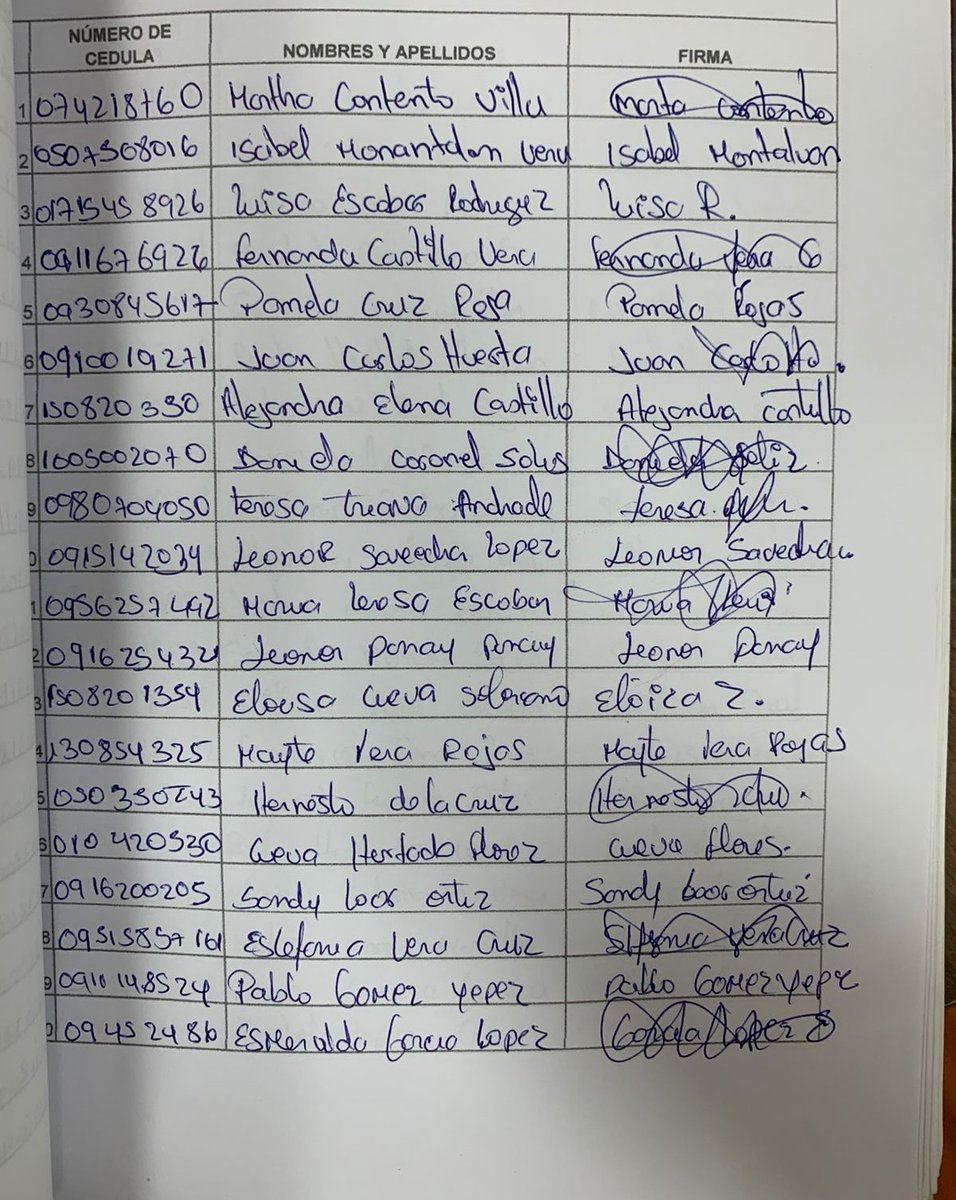 NÚMERO DE CEDULA NOMBRES Y APELLIDOS FIRMA
1 074218760 Martha Contento Villu Marta Contento
2 0507368016 Isabel Monantdon Veru Isabel Montalvan
3 0171545 8926 Luisa Escobar Rodriguez Luisa R.
4 0911676926 Fernanda Castillo Vera Fernanda Vera
5 0930845617 Pamela Cruz Roja Pamela Rojas
6 0910019271 Juan Carlos Huesta Juan
7 150820330 Alejandra Elena Castillo Alejandra Castillo
8 1605002070 Daniela Coronel Solis Daniela
9 0980704050 Teresa Andrade Teresa
0 0915142034 Leonor Saveedra Lopez Leonor Savedra
1 0956257492 Maria Terosa Escobar Maria
2 091625432 Leonor Poncay Poncay Leonor Poncay
3 1508201354 Eloysa Cueva Eloica Z.
4 130854325 Mayte Vera Rojas Mayte Vera Rojas
5 Hernosto de la Cruz Hernosto
6 010420530 Cueva Hurtado Floor Cueva Flores.
7 0916200205 Sandy Loor Ortiz Sandy Loor Ortiz
8 0951585716 Estefania Vera Cruz Vera Cruz
9 0910148524 Pablo Gomez Yepez Pablo Gomez Yepz
0 09452486 Esmeralda Garcia Lopez Lopez